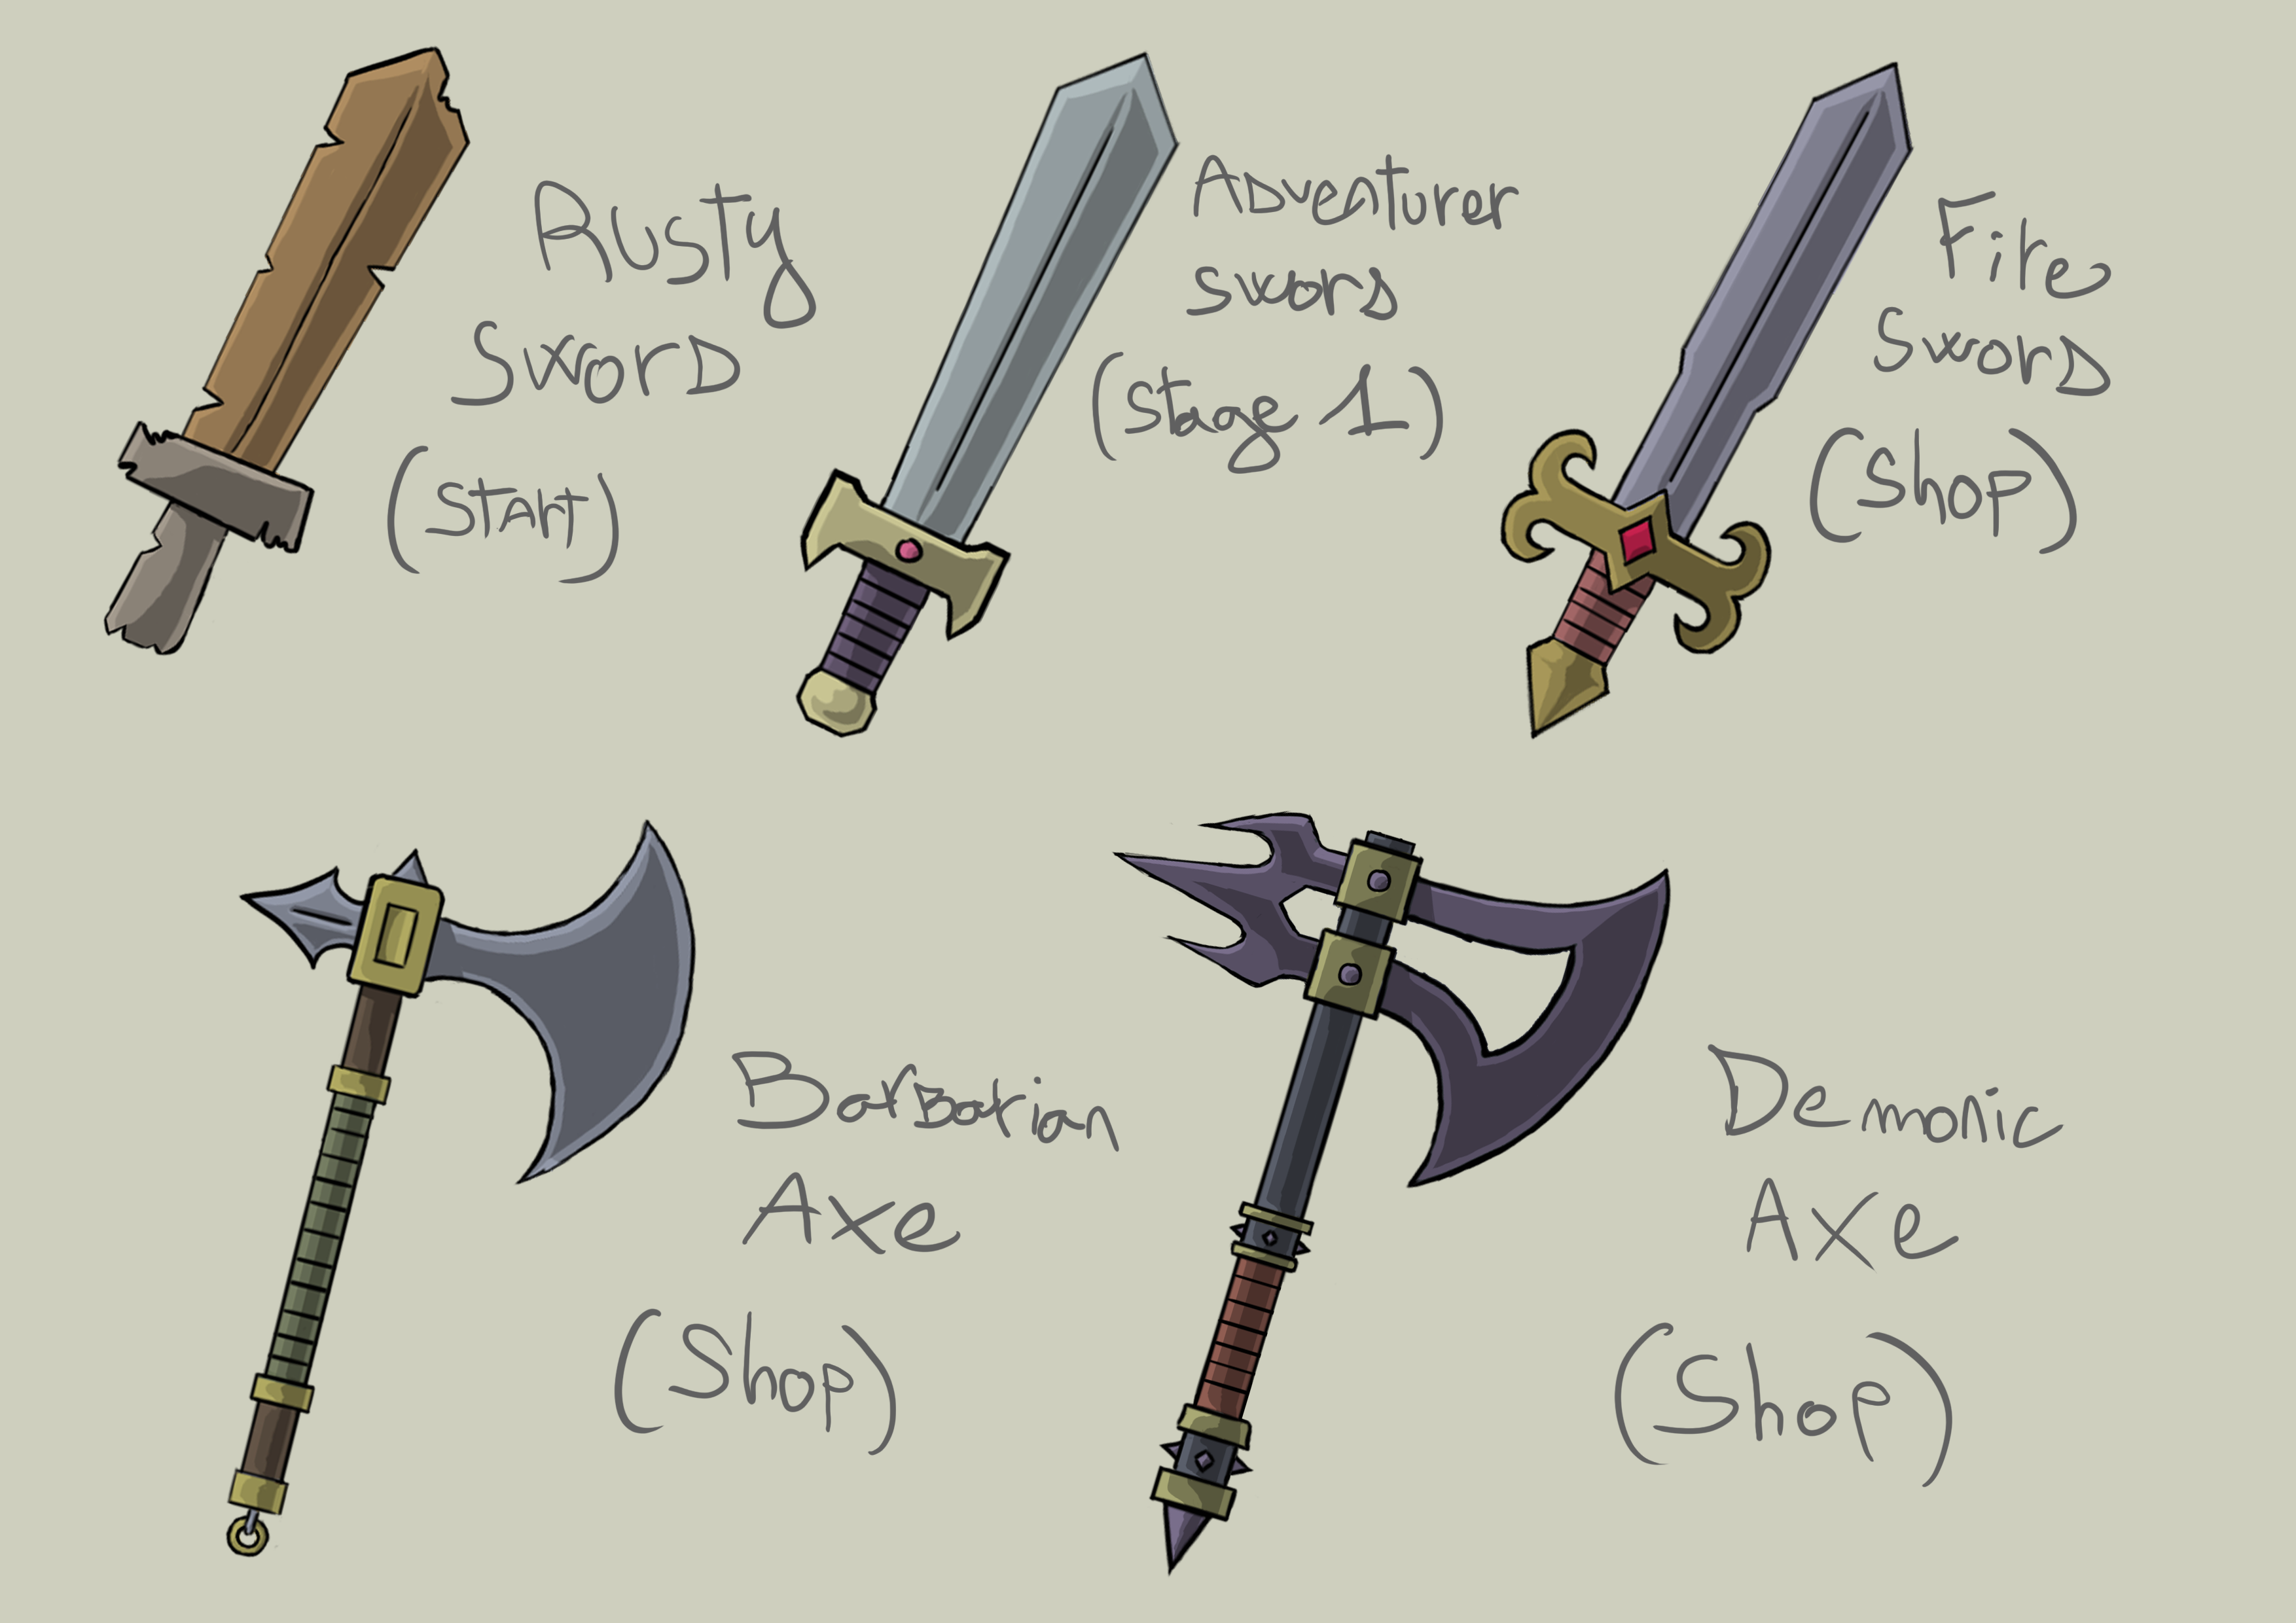 Rusty
Sword
(Start)
Adventurer
Sword
(Stage 1)
Fire
Sword
(Shop)
Barbarian
Axe
(Shop)
Demonic
Axe
(Shop)